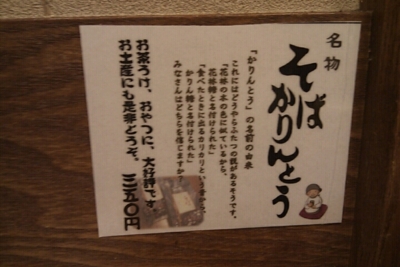 名物
そば
かりんとう
「かりんとう」の名前の由来
これにはどうやらふたつの説があるそうです。
「花林の木の色に似ているから、
花林糖と名付けられた」
「食べたときに出るカリカリという音から、
かりん糖と名付けられた」
みなさんはどちらを信じますか?
お茶うけ、おやつに、大好評です。
お土産にも是非どうぞ。 三五〇円